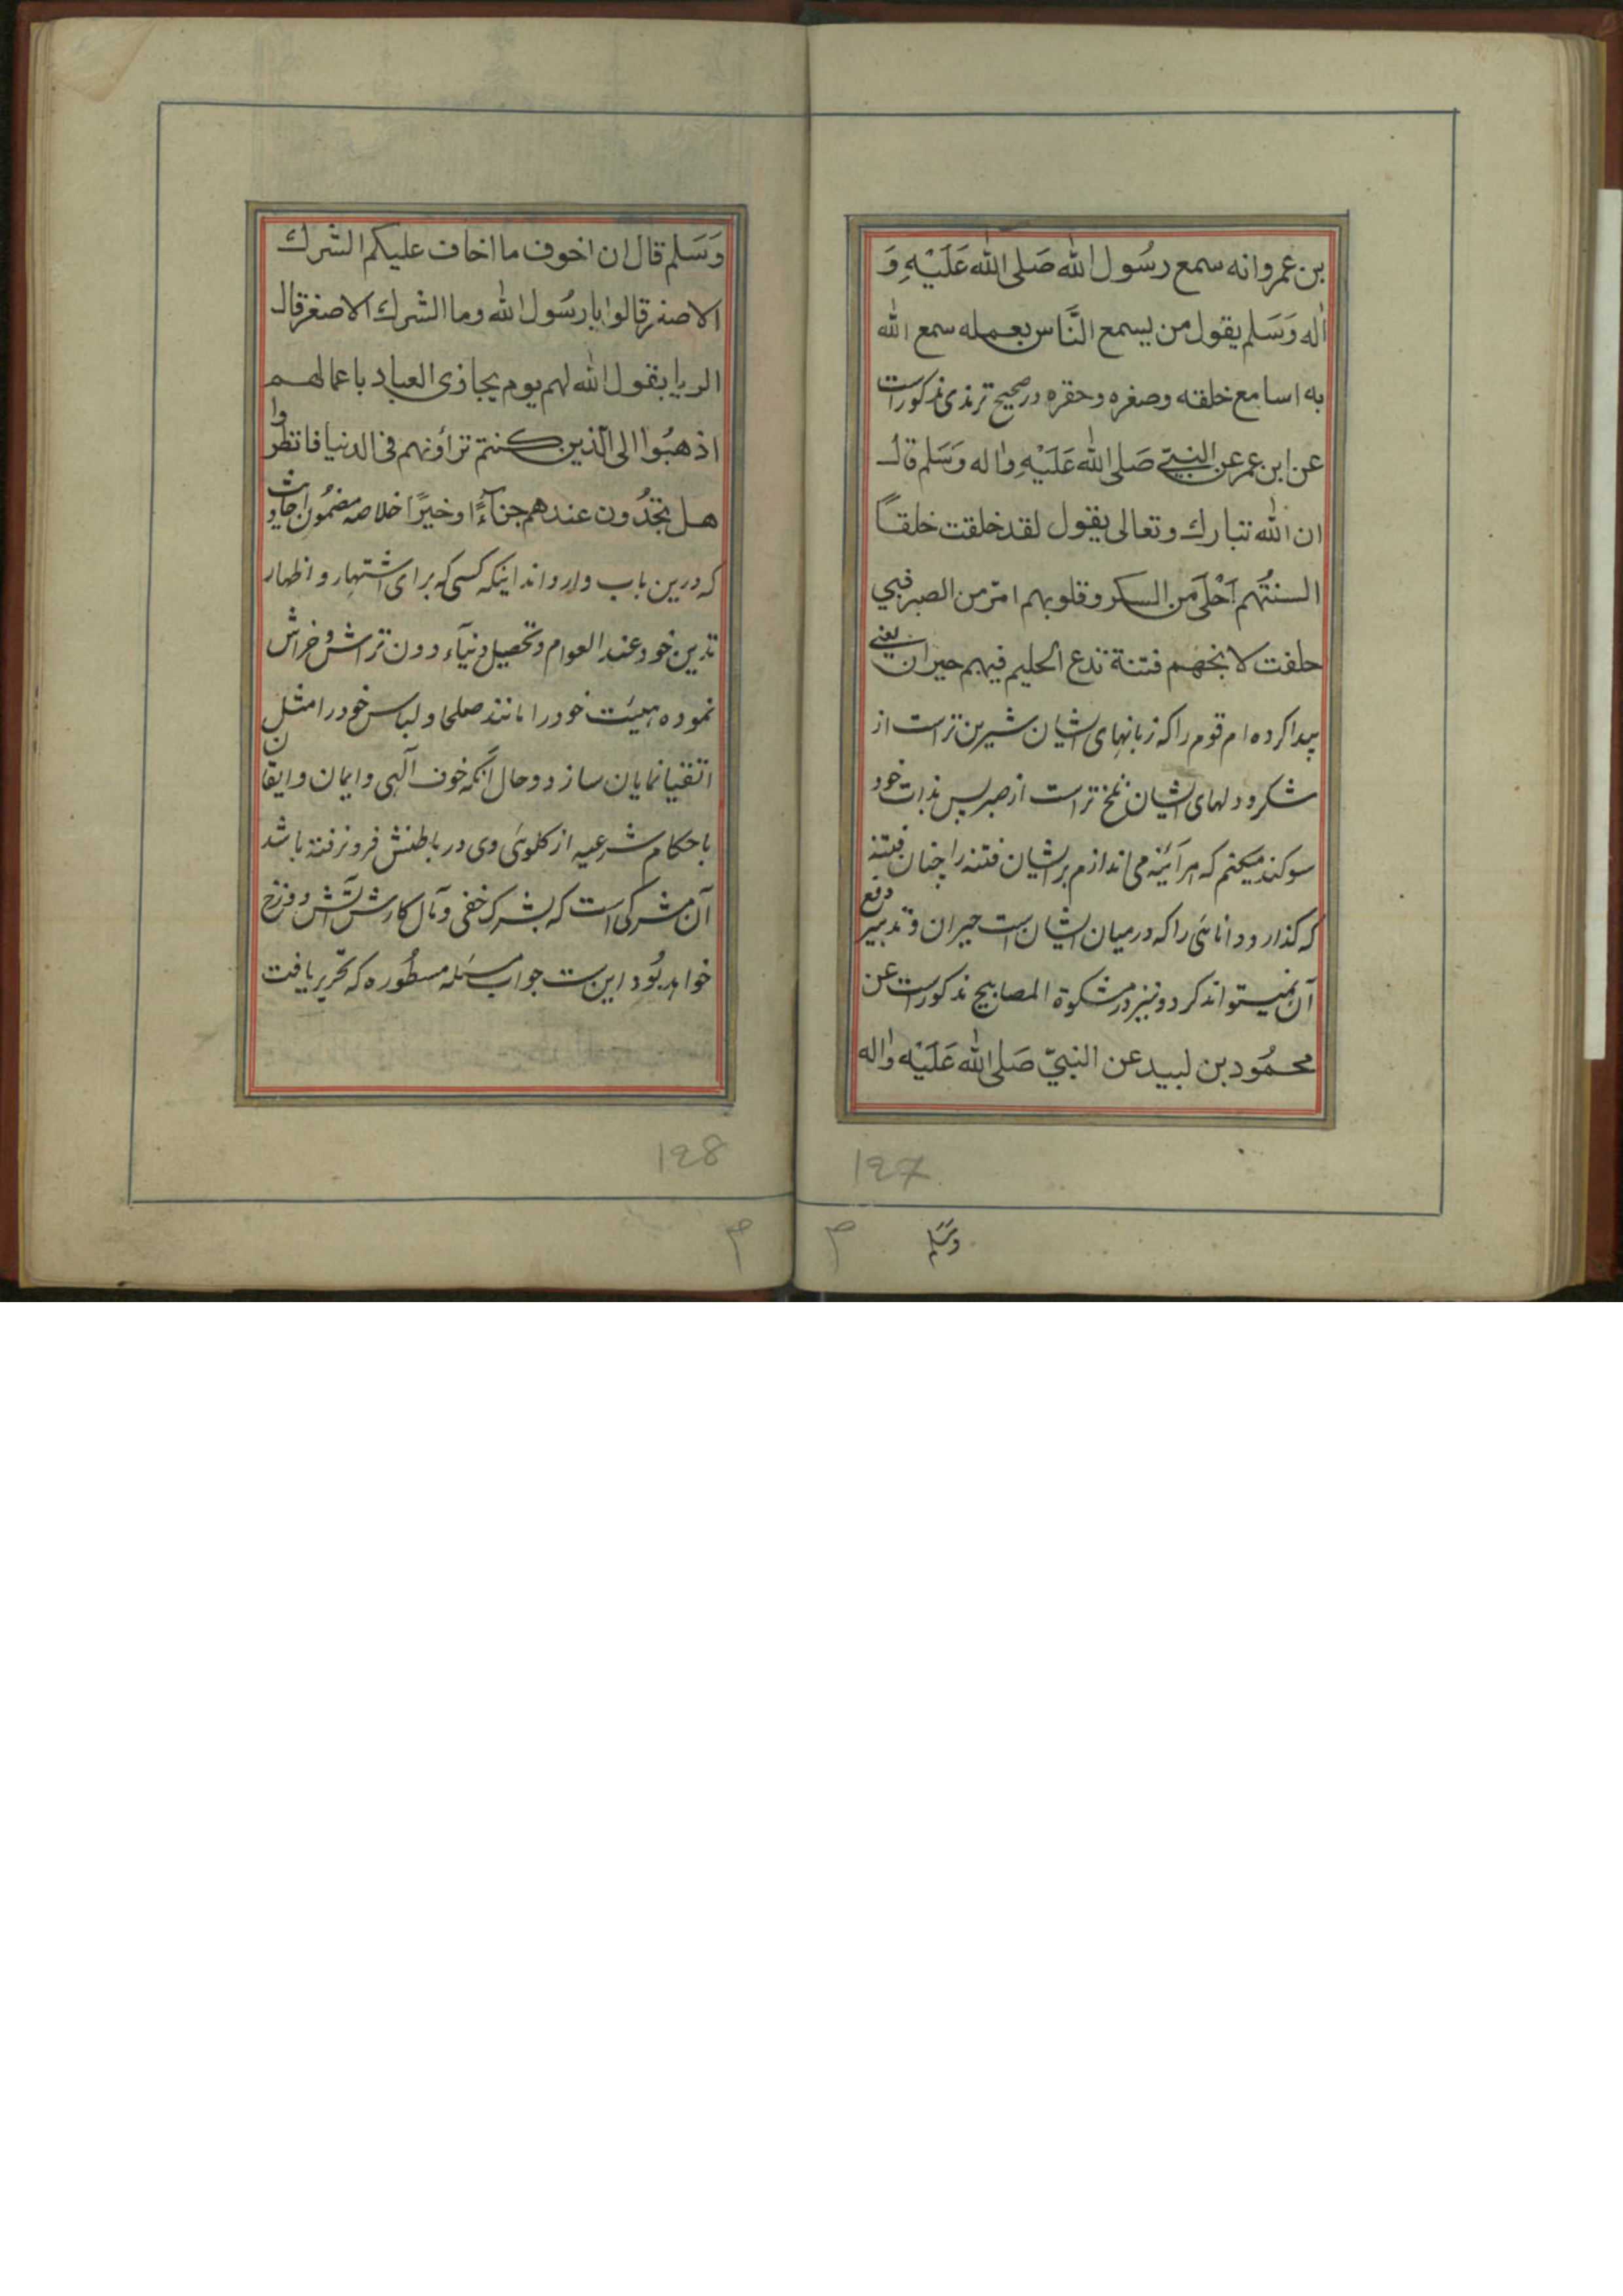 بن عمرو انه سمع رسُول الله صَلى الله عَلَيْهِ وَ
اٰله وَسَلم يقول من يسمع النَّاس بعمله سمع الله
به اسامع خلقه وصغره وحقره در صحيح ترمذى مذکوراست
عن ابن عمر عن النبيّ صَلى الله عَلَيْهِ واٰله وَسَلم قال
ان الله تبارك وتعالى يقول لقد خلقت خلقاً
السنتُهم اَحْلَى من السكر وقلوبهم امرّ من الصبر فبي
حلفت لا تخهم فتنة تدع الحليم فيهم حيران يعنى
پیدا کرده ام قوم را که زبانهای ایشان شیرین تر است از
شکر و دلهای ایشان تلخ تر است از صبر پس بذات خود
سوکند میکنم که هر آئینه می اندازم بر ایشان فتنه را چنان فتنه
که کذارد دانائی را که درمیان ایشان است حیران و تدبیر دفع
آن نمیتواند کرد و نیز در مشکوة المصابیح مذکور است عن
محمُود بن لبيد عن النبيّ صَلى الله عَلَيْه واٰله
127
وسَلم
وَسَلم قال ان اخوف ما اخاف عليكم الشرك
الاصغر قالوا يا رسُول الله وما الشرك الاصغر قال
الريا يقول الله لهم يوم يجازى العباد باعمالهم
اذهبُوا الى الّذين كنتم تراؤنهم فى الدنيا فانظروا
هل تجدُون عندهم جزآءً او خيرًا خلاصه مضمُون احادیث
که درین باب وارد اند اینکه کسی که برای اشتهار و اظهار
تدین خود عند العوام و تحصیل دنیاء دون تراش و خراش
نموده هیئت خود را مانند صلحا و لباس خود را مثل
اتقیا نمایان سازد و حال آنکه خوف آلهی و ایمان و ایقان
باحکام شرعیه از کلوئی وی در باطنش فرو نرفته باشد
آن مشرکی است که بشرک خفی و مآل کارش آتش دوزخ
خواهد بُود این ست جواب مسئله مسطُوره که تحریر یافت
128